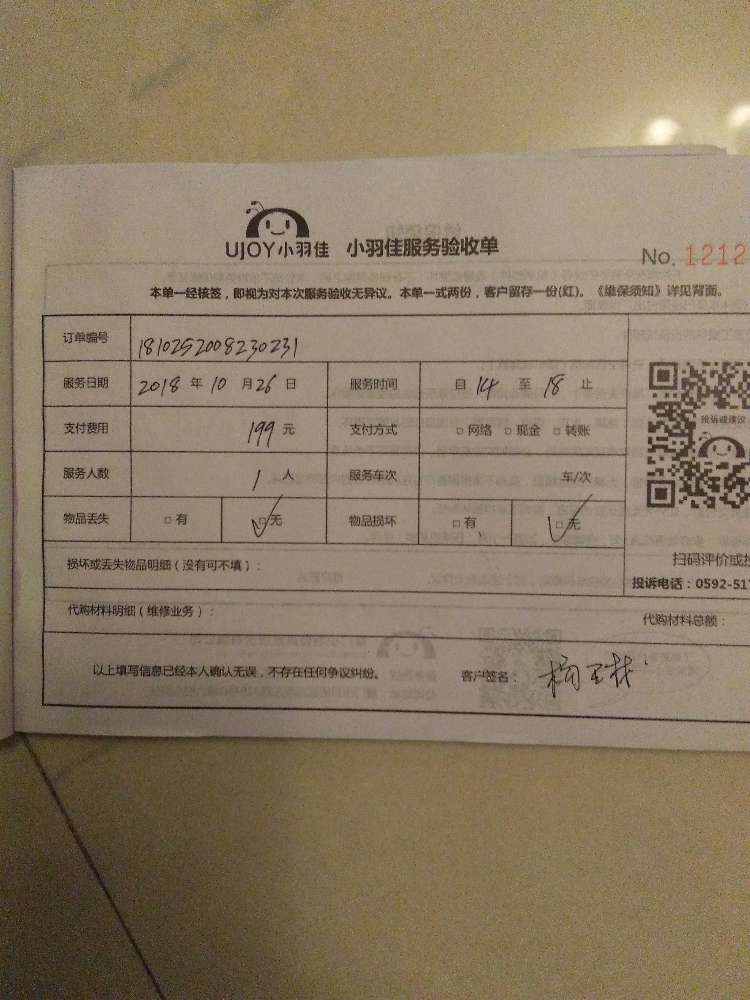 UJOY小羽佳 小羽佳服务验收单
No. 1212
本单一经核签，即视为对本次服务验收无异议。本单一式两份，客户留存一份(红)。《维保须知》详见背面。
订单编号 1810252008230231
服务日期 2018 年 10 月 26 日 服务时间 自 14 至 18 止
支付费用 199 元 支付方式 □ 网络 □ 现金 □ 转账
投诉或建议
服务人数 1 人 服务车次 车/次
物品丢失 □ 有 □ 无 物品损坏 □ 有 □ 无
损坏或丢失物品明细（没有可不填）：
扫码评价或投
投诉电话：0592-517
代购材料明细（维修业务）：
代购材料总额：
以上填写信息已经本人确认无误，不存在任何争议纠纷。 客户签名：